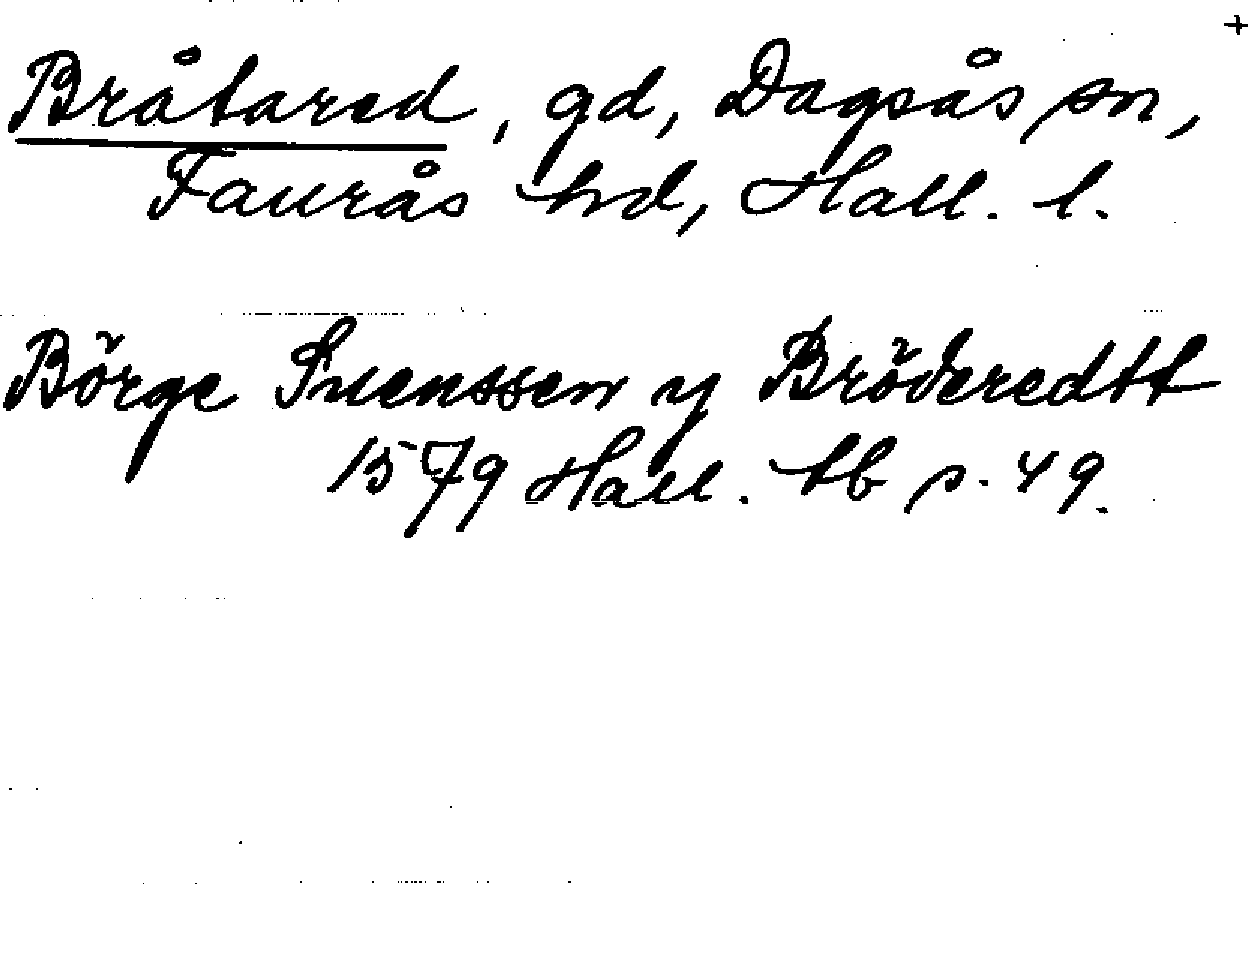 +
Bråtared, gd, Dagsås sn,
Faurås hd, Hall. l.
Börge Suenssen y Bröderedtt
1579 Hall. tb s. 49.